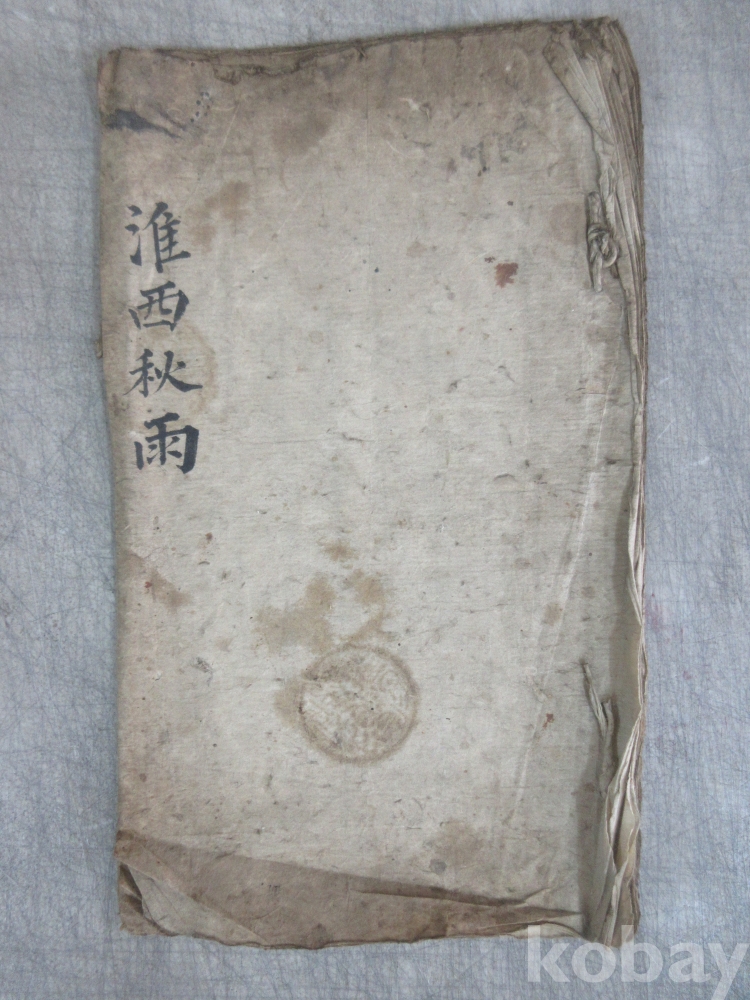 淮西秋雨
kobay